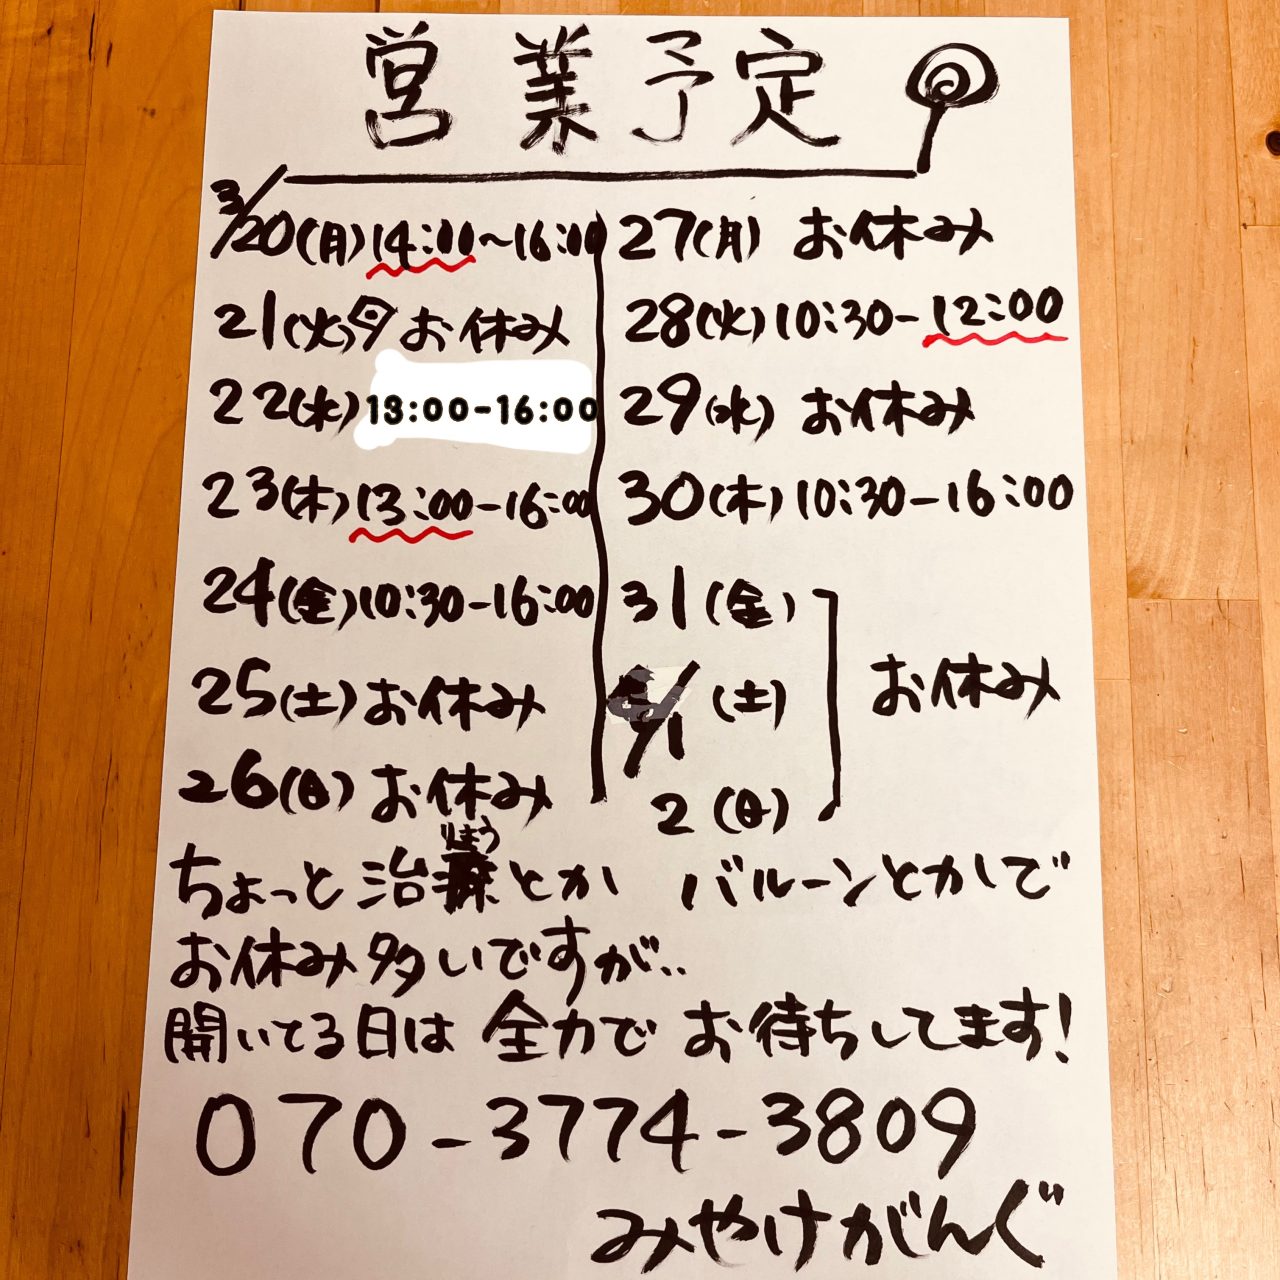 営業予定
3/20(月)14:00~16:00
21(火)夕お休み
22(水)13:00-16:00
23(木)13:00-16:00
24(金)10:30-16:00
25(土)お休み
26(日)お休み
27(月) お休み
28(火)10:30-12:00
29(水) お休み
30(木)10:30-16:00
31(金)
4/1(土)
お休み
2(日)
りょう
ちょっと治療とか バルーンとかしで
お休み多いですが..
開いてる日は 全力で お待ちしてます!
070-3774-3809
みやけがんぐ